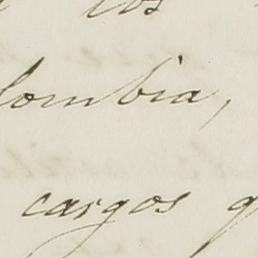 los
lombia,
cargos q